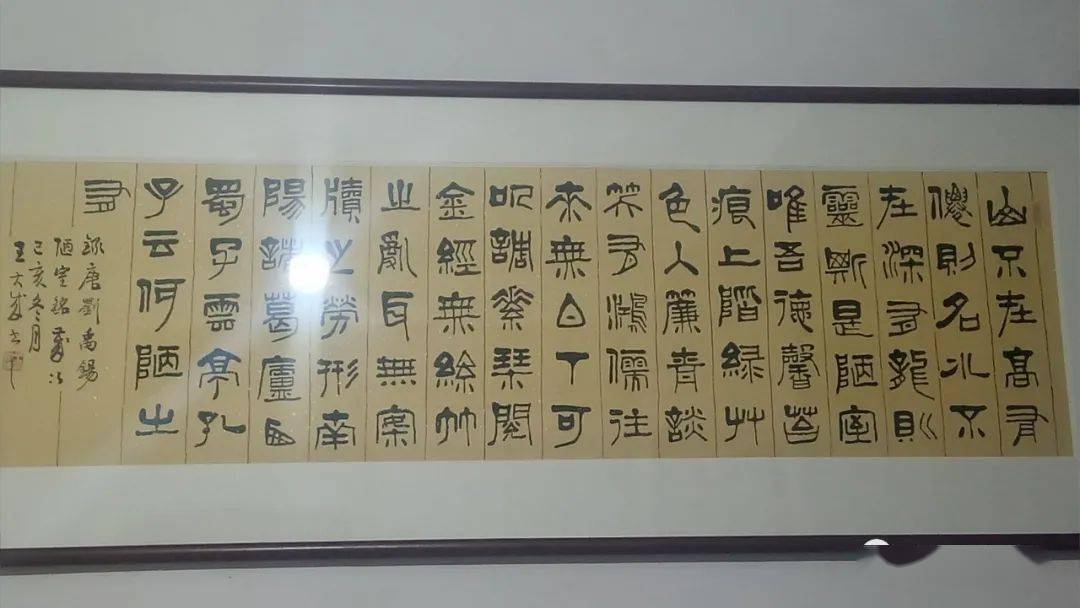 山不在高有
僊則名水不
在深有龍則
靈斯是陋室
唯吾德馨苔
痕上階緑艸
色入簾青談
笑有鴻儒往
来無白丁可
以調素琴閱
金經無絲竹
之亂耳無案
牘之勞形南
陽諸葛廬西
蜀子雲亭孔
子云何陋之
有
録唐劉禹錫
陋室銘
己亥冬月
王大